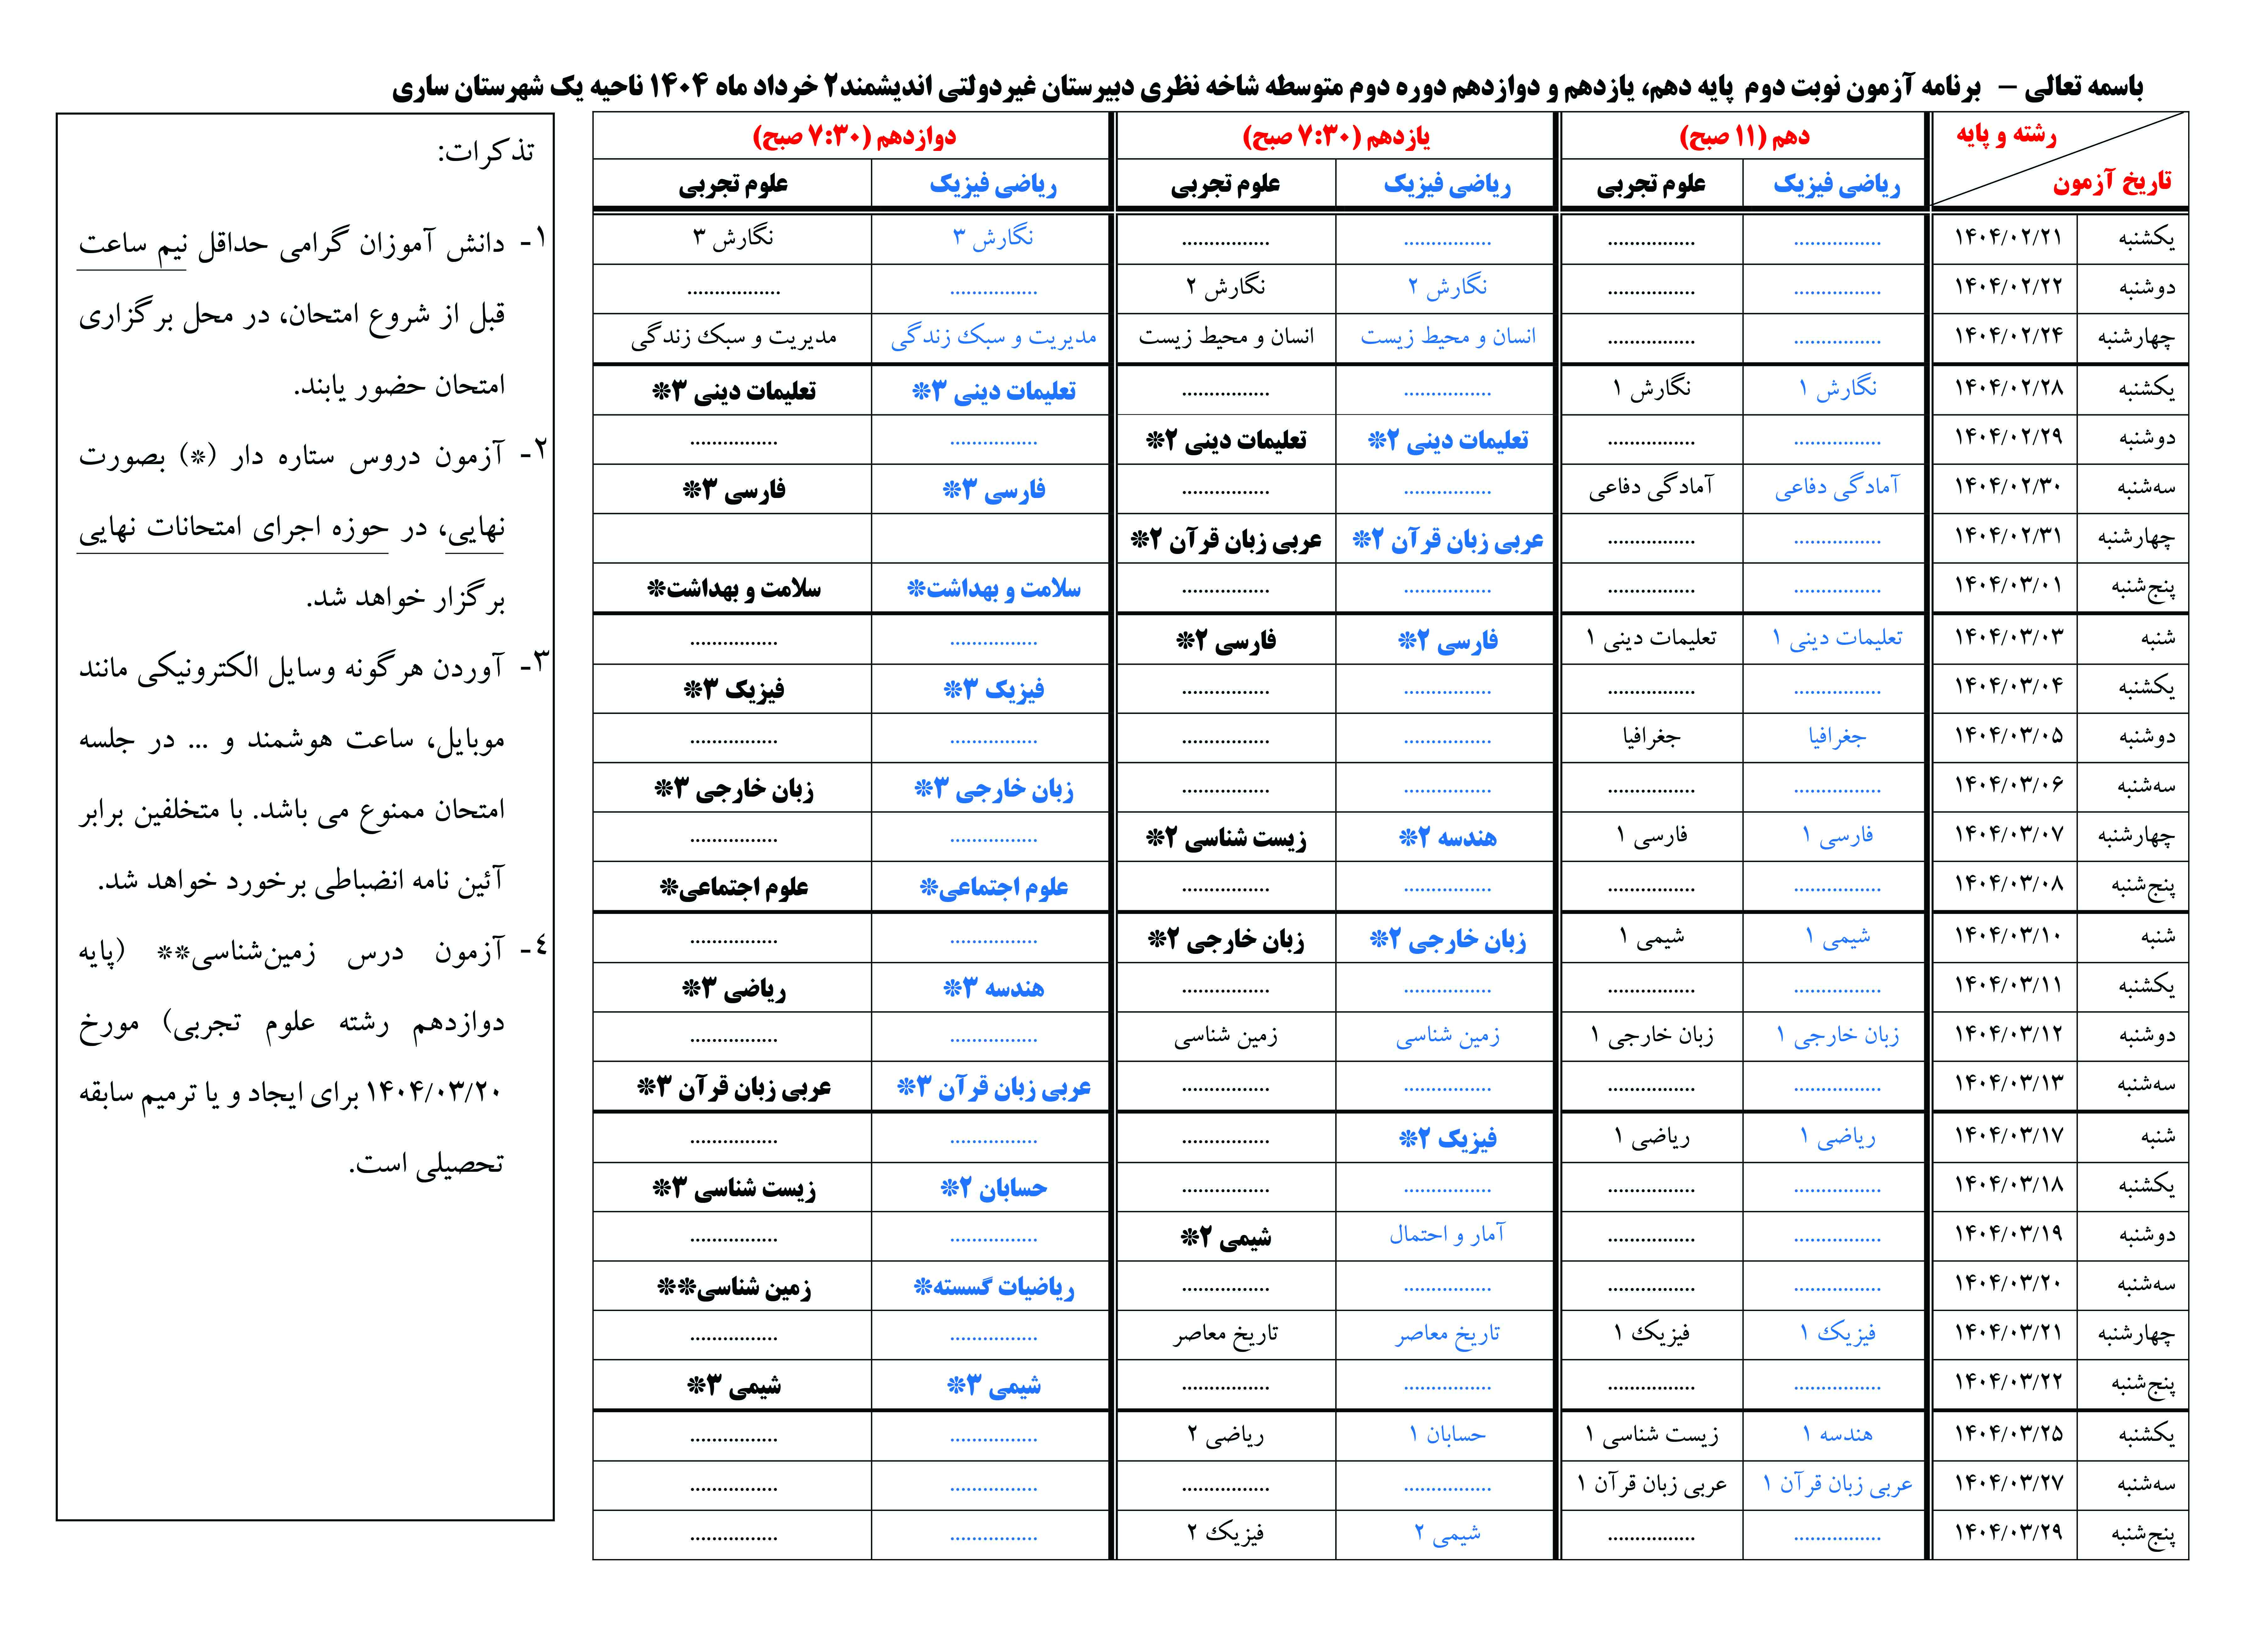 باسمه تعالی – برنامه آزمون نوبت دوم پایه دهم، یازدهم و دوازدهم دوره دوم متوسطه شاخه نظری دبیرستان غیردولتی اندیشمند۲ خرداد ماه ۱۴۰۴ ناحیه یک شهرستان ساری
رشته و پایه دهم (۱۱ صبح) یازدهم (۷:۳۰ صبح) دوازدهم (۷:۳۰ صبح)
تاریخ آزمون ریاضی فیزیک علوم تجربی ریاضی فیزیک علوم تجربی ریاضی فیزیک علوم تجربی
یکشنبه ۱۴۰۴/۰۲/۲۱ ................ ................ ................ ................ نگارش ۳ نگارش ۳
دوشنبه ۱۴۰۴/۰۲/۲۲ ................ ................ نگارش ۲ نگارش ۲ ................ .................
چهارشنبه ۱۴۰۴/۰۲/۲۴ ................ ................ انسان و محیط زیست انسان و محیط زیست مدیریت و سبک زندگی مدیریت و سبک زندگی
یکشنبه ۱۴۰۴/۰۲/۲۸ نگارش ۱ نگارش ۱ ................ ................ تعلیمات دینی ۳* تعلیمات دینی ۳*
دوشنبه ۱۴۰۴/۰۲/۲۹ ................ ................ تعلیمات دینی ۲* تعلیمات دینی ۲* ................ ................
سه‌شنبه ۱۴۰۴/۰۲/۳۰ آمادگی دفاعی آمادگی دفاعی ................ ................ فارسی ۳* فارسی ۳*
چهارشنبه ۱۴۰۴/۰۲/۳۱ ................ ................ عربی زبان قرآن ۲* عربی زبان قرآن ۲*
پنج‌شنبه ۱۴۰۴/۰۳/۰۱ ................ ................ ................ ................ سلامت و بهداشت* سلامت و بهداشت*
شنبه ۱۴۰۴/۰۳/۰۳ تعلیمات دینی ۱ تعلیمات دینی ۱ فارسی ۲* فارسی ۲* ................ ................
یکشنبه ۱۴۰۴/۰۳/۰۴ ................ ................ ................ ................ فیزیک ۳* فیزیک ۳*
دوشنبه ۱۴۰۴/۰۳/۰۵ جغرافیا جغرافیا ................ ................ ................ ................
سه‌شنبه ۱۴۰۴/۰۳/۰۶ ................ ................ ................ ................ زبان خارجی ۳* زبان خارجی ۳*
چهارشنبه ۱۴۰۴/۰۳/۰۷ فارسی ۱ فارسی ۱ هندسه ۲* زیست شناسی ۲* ................ ................
پنج‌شنبه ۱۴۰۴/۰۳/۰۸ ................ ................ ................ ................ علوم اجتماعی* علوم اجتماعی*
شنبه ۱۴۰۴/۰۳/۱۰ شیمی ۱ شیمی ۱ زبان خارجی ۲* زبان خارجی ۲* ................ ................
یکشنبه ۱۴۰۴/۰۳/۱۱ ................ ................ ................ ................ هندسه ۳* ریاضی ۳*
دوشنبه ۱۴۰۴/۰۳/۱۲ زبان خارجی ۱ زبان خارجی ۱ زمین شناسی زمین شناسی ................ ................
سه‌شنبه ۱۴۰۴/۰۳/۱۳ ................ ................ ................ ................ عربی زبان قرآن ۳* عربی زبان قرآن ۳*
شنبه ۱۴۰۴/۰۳/۱۷ ریاضی ۱ ریاضی ۱ فیزیک ۲* ................ ................ ................
یکشنبه ۱۴۰۴/۰۳/۱۸ ................ ................ ................ ................ حسابان ۲* زیست شناسی ۳*
دوشنبه ۱۴۰۴/۰۳/۱۹ ................ ................ آمار و احتمال شیمی ۲* ................ ................
سه‌شنبه ۱۴۰۴/۰۳/۲۰ ................ ................ ................ ................ ریاضیات گسسته* زمین شناسی**
چهارشنبه ۱۴۰۴/۰۳/۲۱ فیزیک ۱ فیزیک ۱ تاریخ معاصر تاریخ معاصر ................ ................
پنج‌شنبه ۱۴۰۴/۰۳/۲۲ ................ ................ ................ ................ شیمی ۳* شیمی ۳*
یکشنبه ۱۴۰۴/۰۳/۲۵ هندسه ۱ زیست شناسی ۱ حسابان ۱ ریاضی ۲ ................ ................
سه‌شنبه ۱۴۰۴/۰۳/۲۷ عربی زبان قرآن ۱ عربی زبان قرآن ۱ ................ ................ ................ ................
پنج‌شنبه ۱۴۰۴/۰۳/۲۹ ................ ................ شیمی ۲ فیزیک ۲ ................ ................
تذکرات:
۱- دانش آموزان گرامی حداقل نیم ساعت
قبل از شروع امتحان، در محل برگزاری
امتحان حضور یابند.
۲- آزمون دروس ستاره دار (*) بصورت
نهایی، در حوزه اجرای امتحانات نهایی
برگزار خواهد شد.
۳- آوردن هرگونه وسایل الکترونیکی مانند
موبایل، ساعت هوشمند و ... در جلسه
امتحان ممنوع می باشد. با متخلفین برابر
آئین نامه انضباطی برخورد خواهد شد.
٤- آزمون درس زمین‌شناسی** (پایه
دوازدهم رشته علوم تجربی) مورخ
۱۴۰۴/۰۳/۲۰ برای ایجاد و یا ترمیم سابقه
تحصیلی است.